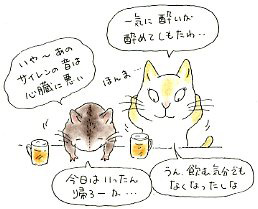 一気に酔いが
酔めてしもたわ…
ほんま…
いや〜あの
サイレンの音は
心臓に悪い
今日はいったん
帰ろーか…
うん、飲む気分でも
なくなったしな